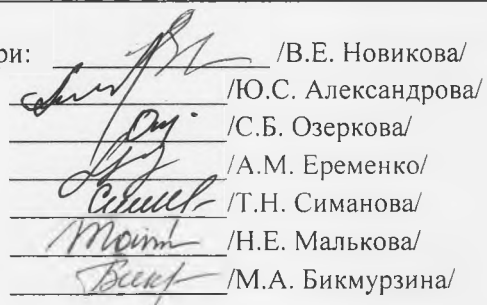 ри: /В.Е. Новикова/
/Ю.С. Александрова/
/С.Б. Озеркова/
/А.М. Еременко/
/Т.Н. Симанова/
/Н.Е. Малькова/
/М.А. Бикмурзина/